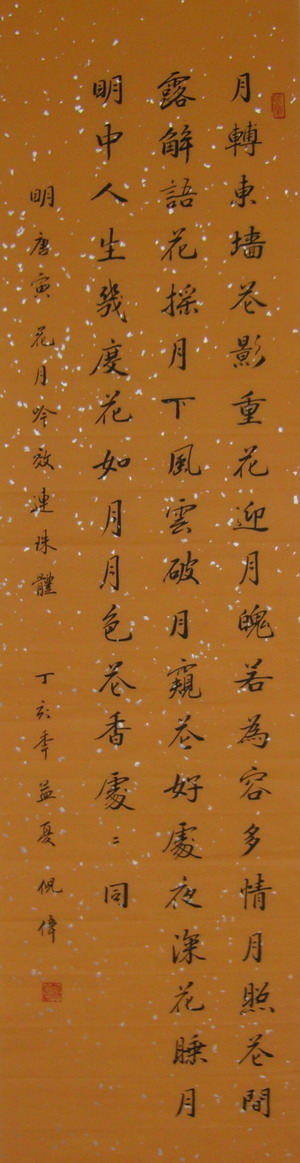 月轉東墻花影重花迎月魄若為容多情月照花間
露解語花搖月下風雲破月窺花好處夜深花睡月
明中人生幾度花如月月色花香處〻同
明唐寅花月吟效連珠體 丁亥年孟夏倪偉